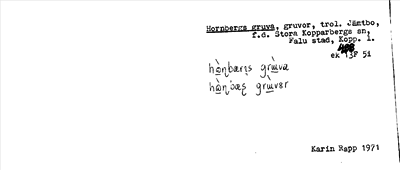 Hornbergs gruva, gruvor, trol. Jämtbo,
f.d. Stora Kopparbergs sn,
Falu stad, Kopp. l.
408
ek 13F 5i
gròva
gròvər
Karin Rapp 1971